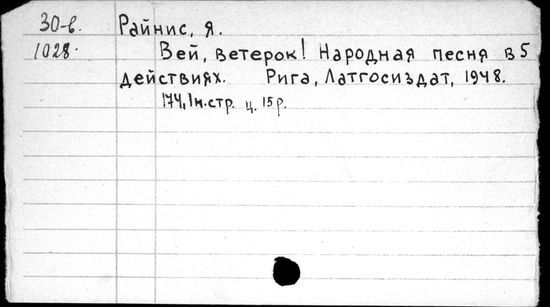 30-в. Райнис, Я.
1028. Вей, ветерок! Народная песня в 5
действиях. Рига, Латгосиздат, 1948.
174, 1 н.стр. ц. 15 р.